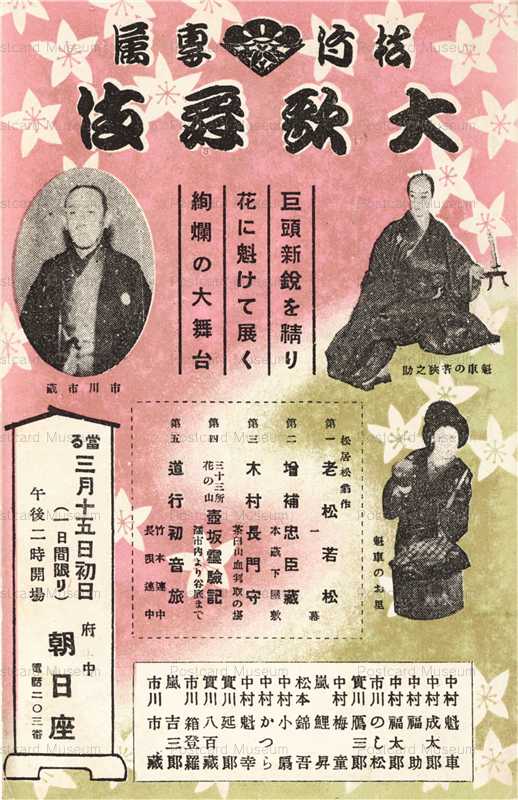 松竹専属
大歌舞伎
巨頭新鋭を精り
花に魁けて展く
絢爛の大舞台
市川市蔵
魁車の若狭之助
魁車のお里
松居松翁作
第一 老松若松 一幕
第二 増補忠臣蔵 本蔵下屋敷
第三 木村長門守 茶臼山血判取の場
第四 三十三所花の山 壺坂霊験記 澤市内より谷底まで
第五 道行初音旅 竹本連中 長唄連中
當る三月十五日初日
(一日間限り)
午後二時開場
府中 朝日座
電話二〇三番
中村魁車
中村成太郎
中村福助
中村福太郎
市川のし松
實川鷹三郎
中村梅童
嵐鯉昇
松本錦吾
中村小扇
中村かつら
中村魁幸
實川延郎
實川八百蔵
市川箱登羅
嵐吉三郎
市川市蔵
Postcard Museum